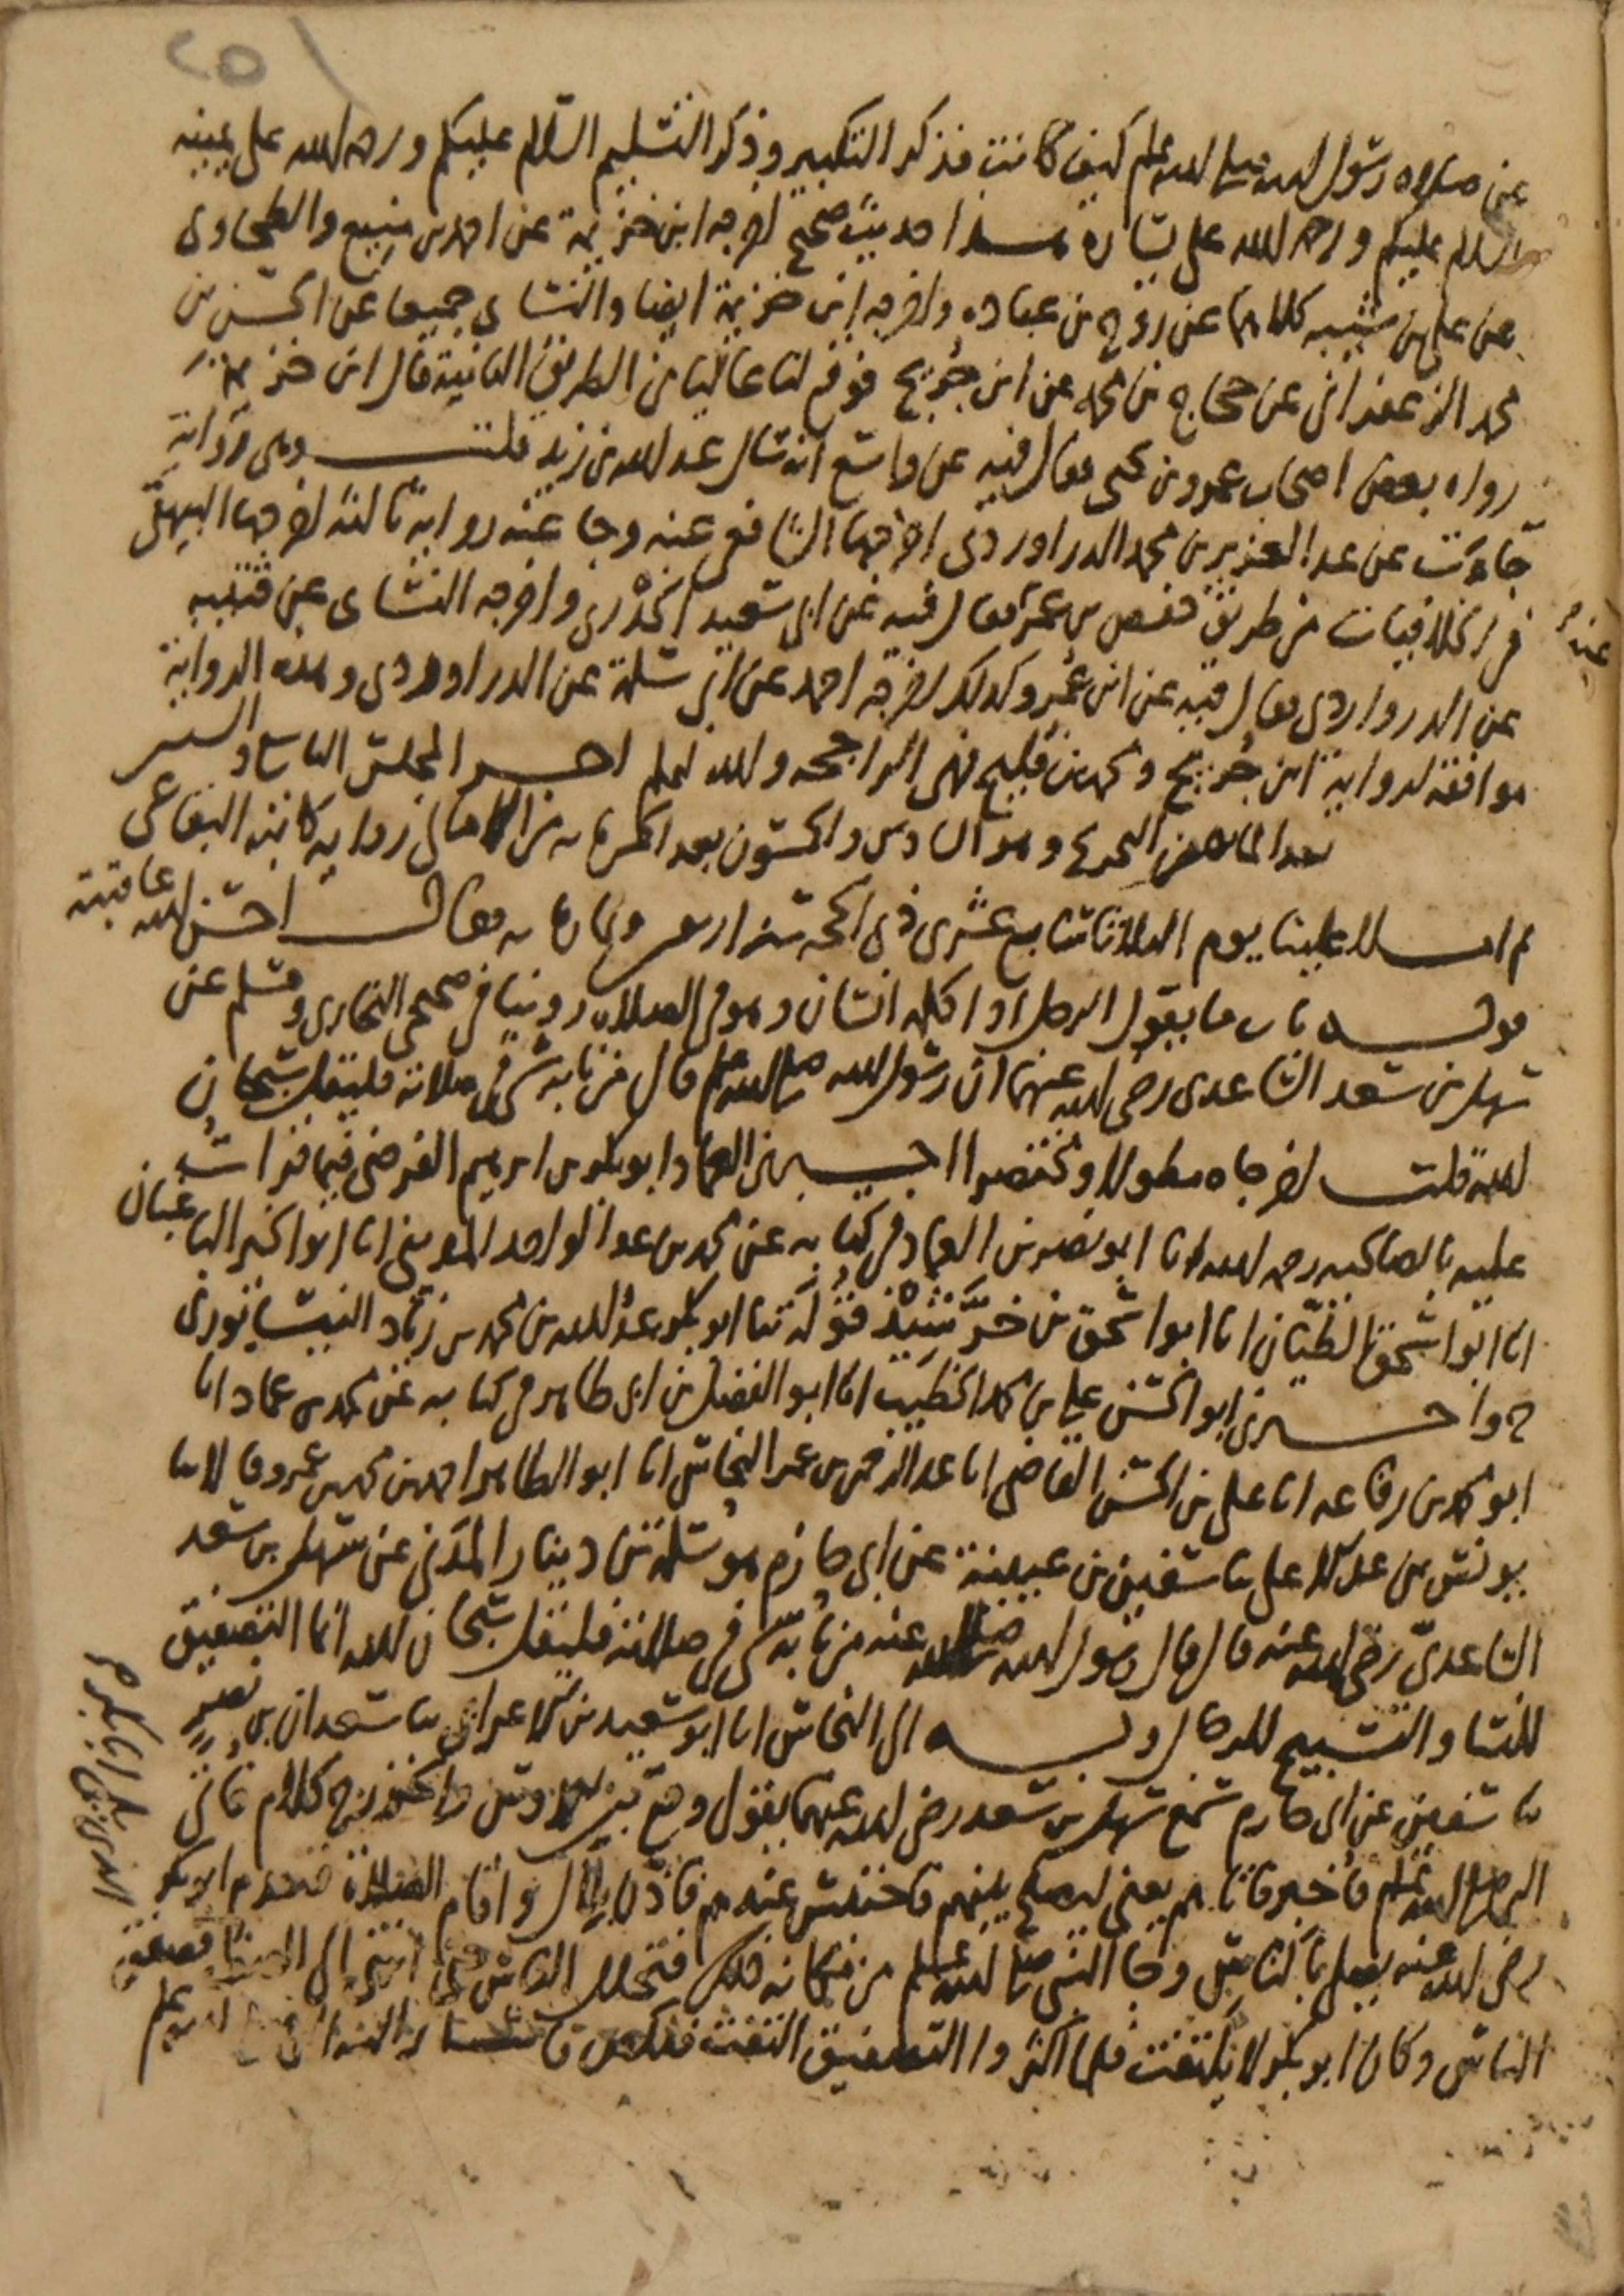 ٢٥١
عن صلاه رسول الله صلى الله علم كيف كانت فذكر التكبير وذكر التسليم السلام عليكم ورحمه الله على يمينه
السلام عليكم ورحمه الله على يساره هذا حديث صحيح اخرجه ابن خزيمة عن احمد بن منيع والطحاوى
عن على بن شيبه كلاهما عن روح بن عباده واخرجه ابن خزيمة ايضا والنساى جميعا عن الحسن بن
محمد الزعفرانى عن حجاج بن محمد عن ابن جريج فوقع لنا عاليا من الطريق الثانية قال ابن خزيمة
رواه بعض اصحاب عمرو بن يحيى فقال فيه عن واسع انه سال عبد الله بن زيد قلت وهى رواية
جاءت عن عبد العزيز بن محمد الدراوردى اخرجها الشافعى عنه وجا عنه رواية ثالثة اخرجها البيهقى
فى الخلافيات من طريق حفص بن عمر فقال فيه عن ابى سعيد الخدرى واخرجه النساى عن قتيبه
عنه
عن الدرواردى فقال فيه عن ابن عمر وكذلك اخرجه احمد عن ابى سلمة عن الدراوردى وهذه الرواية
موافقة لرواية ابن جريج ومحمد بن فليح فهى الراجحه والله اعلم اخر المجلس السادس والستين
بعد الماية من التخريج وهو السادس والخمسون بعد الخمسماية من الامالى رواية كاتبه البقاعى
ثم املا علينا يوم الثلاثا سابع عشرى ذى الحجة سنه اربعين وثمانماية فقال احسن الله عاقبته
قوله باب ما يقول الرجل اذا كلمه انسان وهو فى الصلاه روينا فى صحيحى البخارى ومسلم عن
سهل بن سعد الساعدى رضى الله عنهما ان رسول الله صلى الله علم قال من نابه شى فى صلاته فليقل سبحان
الله قلت اخرجاه مطولا ومختصرا اخبرنى العماد ابو بكر بن ابرهيم الفرضى فيما قرات
عليه بالصالحيه رحمه الله انا ابو نصر بن العماد فى كتابه عن محمد بن عبد الواحد المدينى انا ابو الخير الباغبان
انا ابو اسحق الطيان انا ابو اسحق بن خرشيذ قوله ثنا ابو بكر عبد الله بن محمد بن زياد النيسابورى
ح واخبرنى ابو الحسن على بن محمد الخطيب انا ابو الفضل بن ابى طاهر فى كتابه عن محمد بن عماد انا
ابو محمد بن رفاعه انا على بن الحسن القاضى انا عبد الرحمن بن عمر النحاس انا ابو الطاهر احمد بن محمد بن عمرو قالا ثنا
يونس بن عبد الاعلى ثنا سفين بن عيينة عن ابى حازم هو سلمة بن دينار المدنى عن سهل بن سعد
الساعدى رضى الله عنه قال قال رسول الله صلى الله عنه من نابه شى فى صلاته فليقل سبحان الله انما التصفيق
للنسا والتسبيح للرجال وبه الى النحاس انا ابو سعيد بن الاعرابى ثنا سعدان بن نصر
ثنا سفين عن ابى حازم سمع سهل بن سعد رضى الله عنهما يقول وقع بين الاوس والخزرج كلام فاتى
النبى صلى الله علم فاخبر فاتاهم يعنى ليصلح بينهم فاحتبس عندهم فاذن بلال واقام الصلاة فتقدم ابو بكر
رضى الله عنه يصلى بالناس وجا النبى صلى الله علم من مكانه ذلك فتخلل الناس حتى انتهى الى الصف فصفق
الناس وكان ابو بكر لا يلتفت فلما اكثروا التصفيق التفت